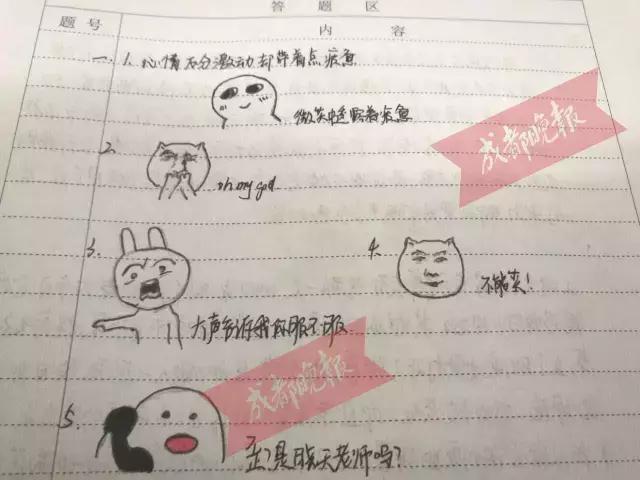 答题区
题号 内容
一、1. 心情十分激动却带着点疲惫
微笑中透露着疲惫
成都晚报
2.
oh my god
3.
4.
不能笑!
大声告诉我你服不服
成都晚报
5.
歪?是聊天老师吗?